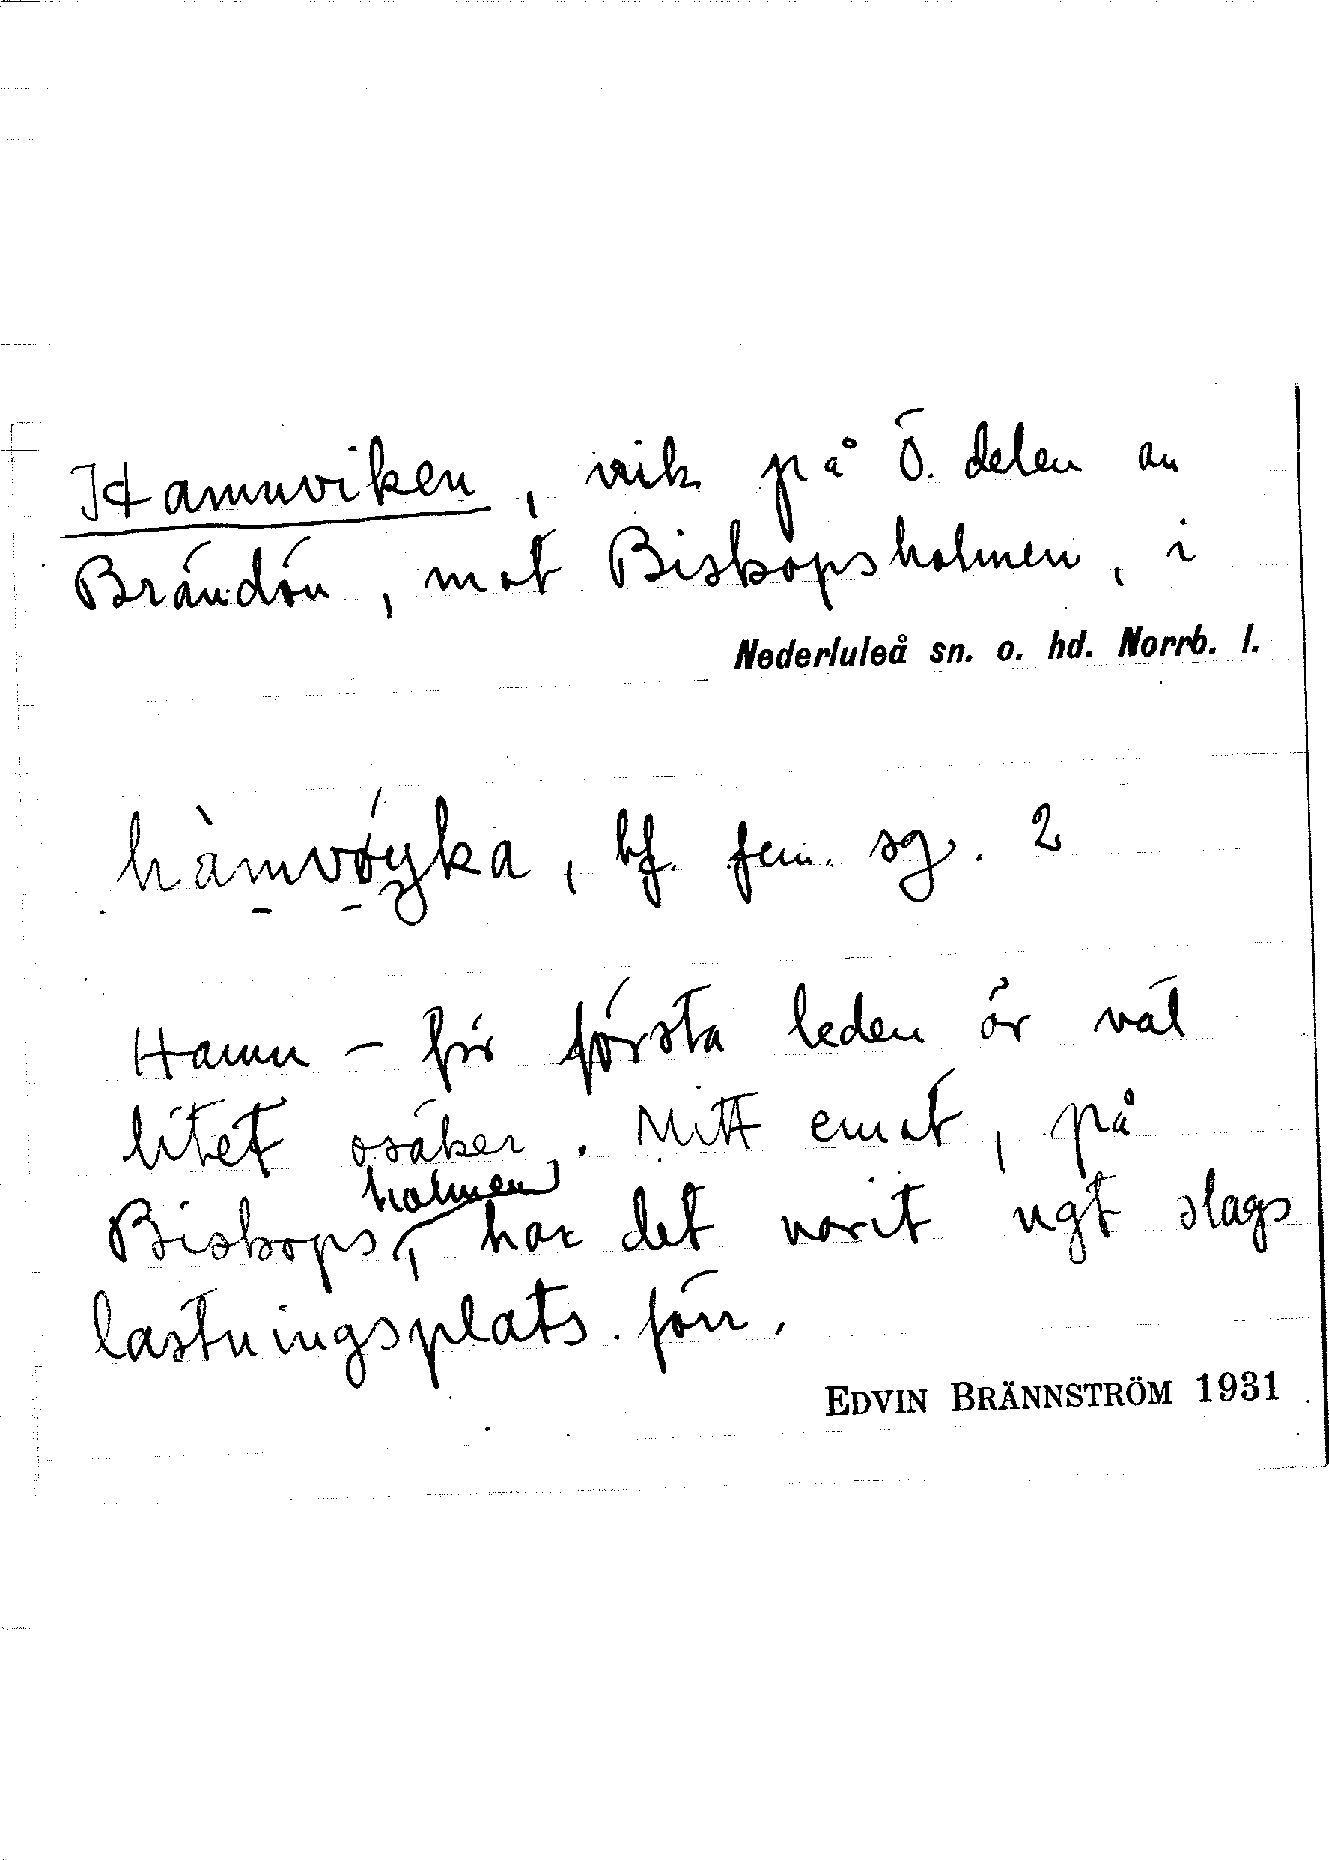 Hamnviken, vik på Ö. delen av
Brändön, mot Biskopsholmen, i
Nederluleå sn. o. hd. Norrb. l.
hàmvø̀yka, bf. fem. sg. 2
Hamn – för första leden är väl
litet osäker. Mitt emot, på
Biskopsholmen, har det varit ngt slags
lastningsplats förr.
EDVIN BRÄNNSTRÖM 1931